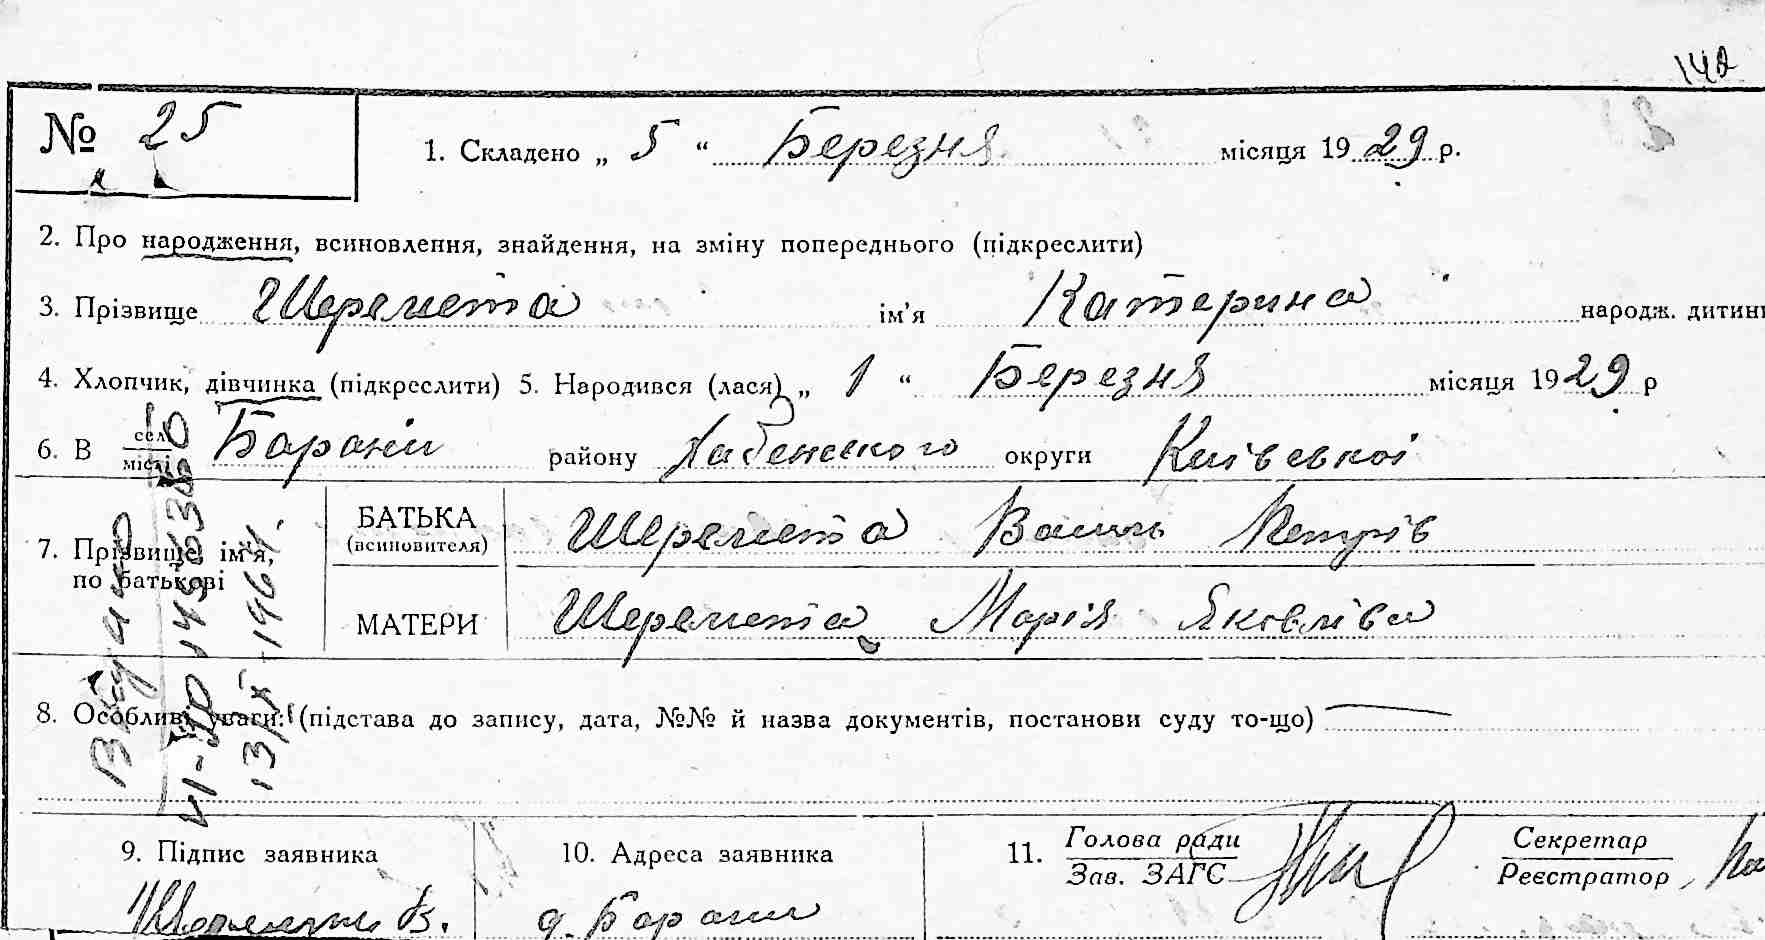 142
№ 25
1. Складено „ 5 “ Березня місяця 1929 р.
2. Про народження, всиновлення, знайдення, на зміну попереднього (підкреслити)
3. Прізвище Шеремета ім’я Катерина народж. дитини
4. Хлопчик, дівчинка (підкреслити) 5. Народився (лася) „ 1 “ Березня місяця 1929 р
6. В селі місті Барани району Хабенського округи Київської
7. Прізвище, ім’я, по батькові
БАТЬКА (всиновителя) Шеремета Василь Петрів
МАТЕРИ Шеремета Марія Яковлівна
8. Особливі уваги: (підстава до запису, дата, №№ й назва документів, постанови суду то-що)
9. Підпис заявника
10. Адреса заявника
11. Голова ради
Зав. ЗАГС
Секретар
Реєстратор
В.
Барани